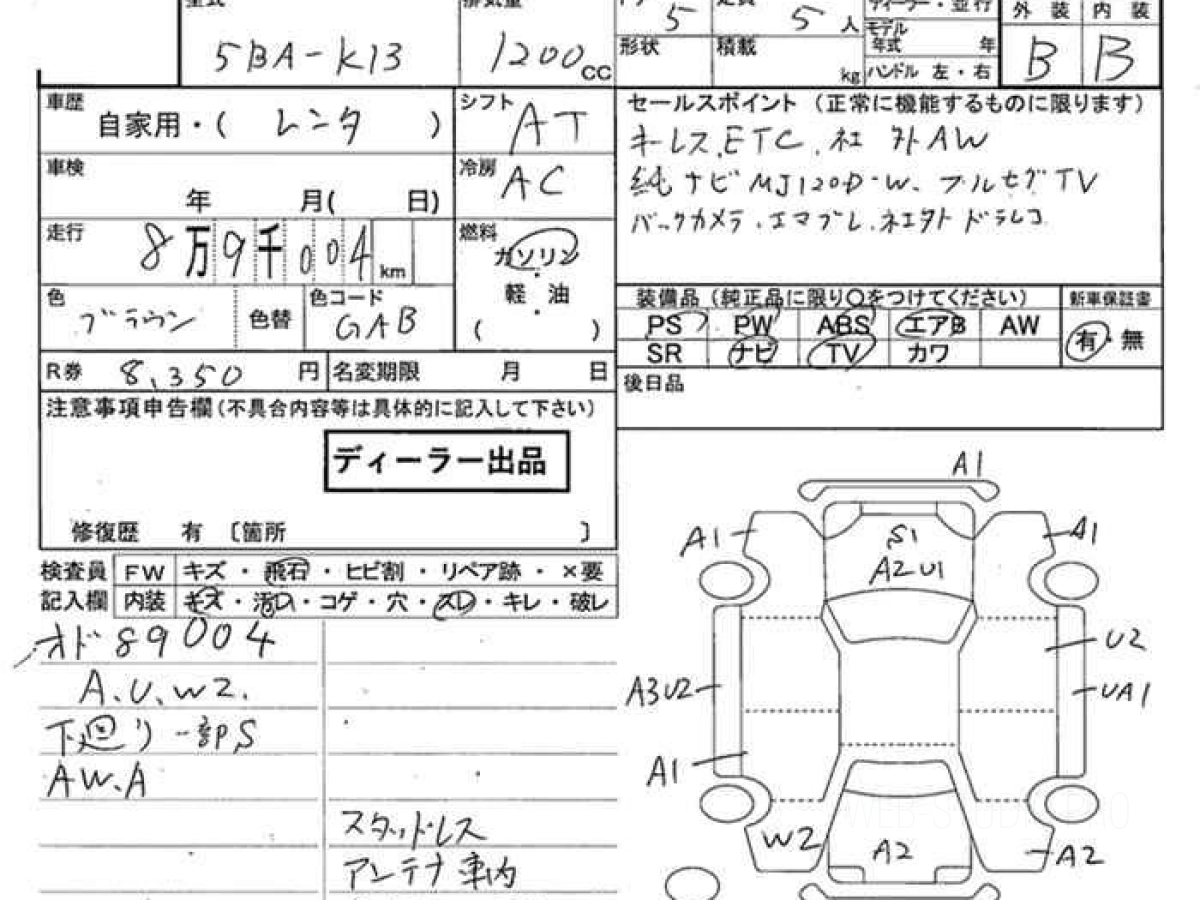 型式 排気量 ドア 定員 ディーラー・並行 外装 内装
5BA-K13 1200 CC 5 5人 モデル年式 年 B B
形状 積載 kg ハンドル 左・右
車歴 自家用・( レンタ ) シフト AT
セールスポイント (正常に機能するものに限ります)
キーレス、ETC、社外AW
純ナビMJ120D-W、フルセグTV
バックカメラ、エマブレ、ネエタトドラレコ
車検 年 月( 日) 冷房 AC
走行 8万9千004 km 燃料 ガソリン・軽油・( )
色 ブラウン 色替 色コード GAB
装備品 (純正品に限り○をつけてください) 新車保証書
PS PW ABS エアB AW 有・無
SR ナビ TV カワ
R券 8,350 円 名変期限 月 日
後日品
注意事項申告欄(不具合内容等は具体的に記入して下さい)
ディーラー出品
修復歴 有 〔箇所 〕
検査員 FW キズ・飛石・ヒビ割・リペア跡・×要
記入欄 内装 キズ・汚れ・コゲ・穴・スレ・キレ・破レ
オド89004
A、U、W2、
下廻り一部P,S
AW、A
スタッドレス
アンテナ車内
A1
A1 S1 A1
A2 U1
U2
A3U2 UA1
A1
W2 A2 A2